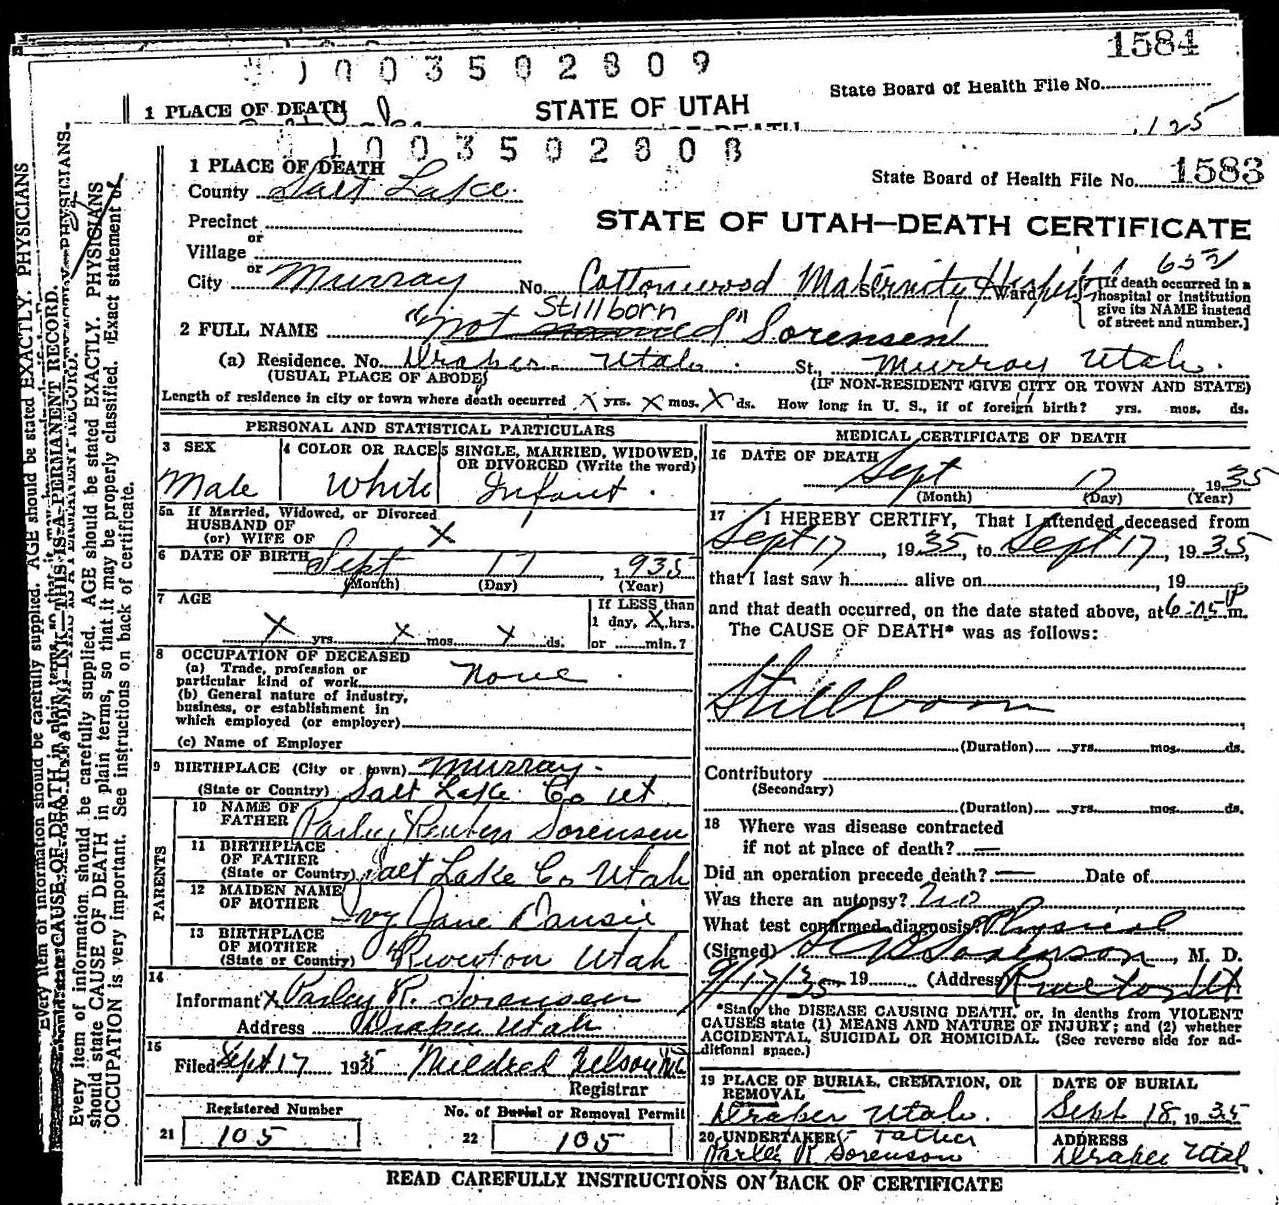 1584
0 1 0 0 3 5 0 2 8 0 9
State Board of Health File No.
1 PLACE OF DEATH
STATE OF UTAH
125
0 1 0 0 3 5 0 2 8 0 8
1 PLACE OF DEATH
County Salt Lake
State Board of Health File No. 1583
Precinct
STATE OF UTAH—DEATH CERTIFICATE
or
Village
or
City Murray No. Cottonwood Maternity Hospital St. Ward
[If death occurred in a hospital or institution give its NAME instead of street and number.]
Stillborn
2 FULL NAME "not named" Sorensen
(a) Residence. No. Draper Utah. St., Murray Utah.
(USUAL PLACE OF ABODE) (IF NON-RESIDENT GIVE CITY OR TOWN AND STATE)
Length of residence in city or town where death occurred X yrs. X mos. X ds. How long in U. S., if of foreign birth? yrs. mos. ds.
PERSONAL AND STATISTICAL PARTICULARS
3 SEX
Male
4 COLOR OR RACE
White
5 SINGLE, MARRIED, WIDOWED, OR DIVORCED (Write the word)
Infant.
5a If Married, Widowed, or Divorced
HUSBAND OF
(or) WIFE OF X
6 DATE OF BIRTH Sept 17, 1935
(Month) (Day) (Year)
7 AGE
X yrs. X mos. X ds.
If LESS than
1 day, X hrs.
or ...... min.?
8 OCCUPATION OF DECEASED
(a) Trade, profession or
particular kind of work None.
(b) General nature of industry,
business, or establishment in
which employed (or employer)
(c) Name of Employer
9 BIRTHPLACE (City or town) Murray-
(State or Country) Salt Lake Co Ut
PARENTS
10 NAME OF
FATHER Parley Reuben Sorensen
11 BIRTHPLACE
OF FATHER
(State or Country) Salt Lake Co Utah
12 MAIDEN NAME
OF MOTHER Ivy Jane Dansie
13 BIRTHPLACE
OF MOTHER
(State or Country) Riverton Utah
14
Informant X Parley R. Sorensen
Address Draper Utah
15
Filed Sept 17 1935 Mildred Nelson
Registrar
Registered Number
21 105
No. of Burial or Removal Permit
22 105
MEDICAL CERTIFICATE OF DEATH
16 DATE OF DEATH
Sept 17 1935
(Month) (Day) (Year)
17 I HEREBY CERTIFY, That I attended deceased from
Sept 17, 1935, to Sept 17, 1935,
that I last saw h...... alive on......, 19......
and that death occurred, on the date stated above, at 6:05 P m.
The CAUSE OF DEATH* was as follows:
Stillborn
(Duration) yrs. mos. ds.
Contributory
(Secondary)
(Duration) yrs. mos. ds.
18 Where was disease contracted
if not at place of death? —
Did an operation precede death? — Date of
Was there an autopsy? no
What test confirmed diagnosis? Physical
(Signed) Sorenson, M. D.
9/17/35 19 (Address)
*State the DISEASE CAUSING DEATH, or, in deaths from VIOLENT
CAUSES state (1) MEANS AND NATURE OF INJURY; and (2) whether
ACCIDENTAL, SUICIDAL OR HOMICIDAL. (See reverse side for ad-
ditional space.)
19 PLACE OF BURIAL, CREMATION, OR
REMOVAL
Draper Utah.
DATE OF BURIAL
Sept 18, 1935
20 UNDERTAKER Father
Parley R Sorenson
ADDRESS
Draper Utah.
READ CAREFULLY INSTRUCTIONS ON BACK OF CERTIFICATE
Every item of information should be carefully supplied. AGE should be stated EXACTLY. PHYSICIANS
should state CAUSE OF DEATH in plain terms, so that it may be properly classified. Exact statement of
OCCUPATION is very important. See instructions on back of certificate.